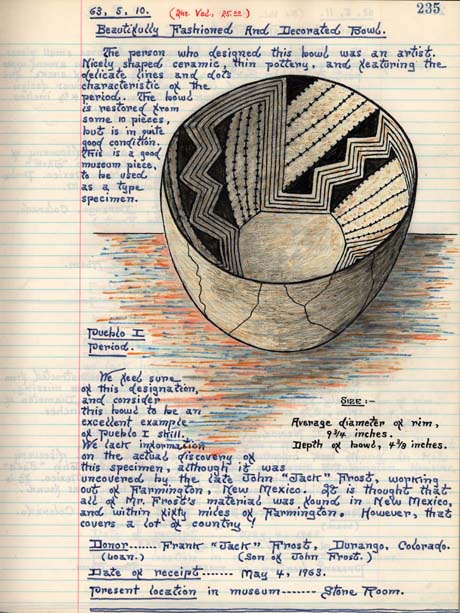 235
63. 5. 10. Val. 25.00)
Beautifully Fashioned And Decorated Bowl.
The person who designed this bowl was an artist.
Nicely shaped ceramic, thin pottery, and featuring the
delicate lines and dots
characteristic of the
period. The bowl
is restored from
some 10 pieces,
but is in quite
good condition.
This is a good
museum piece,
to be used
as a type
specimen.
Pueblo I
Period.
We feel sure
of this designation,
and consider
this bowl to be an
excellent example
of Pueblo I skill.
We lack information
on the actual discovery of
this specimen, although it was
uncovered by the late John "Jack" Frost, working
out of Farmington, New Mexico. It is thought that
all of Mr. Frost's material was found in New Mexico,
and within fifty miles of Farmington. However, that
covers a lot of country!
Size:-
Average diameter of rim,
9 3/4 inches.
Depth of bowl, 4 3/8 inches.
Donor....... Frank "Jack" Frost, Durango, Colorado.
(Loan.) (Son of John Frost.)
Date of receipt------- May 4, 1963.
Present location in museum------- Store Room.